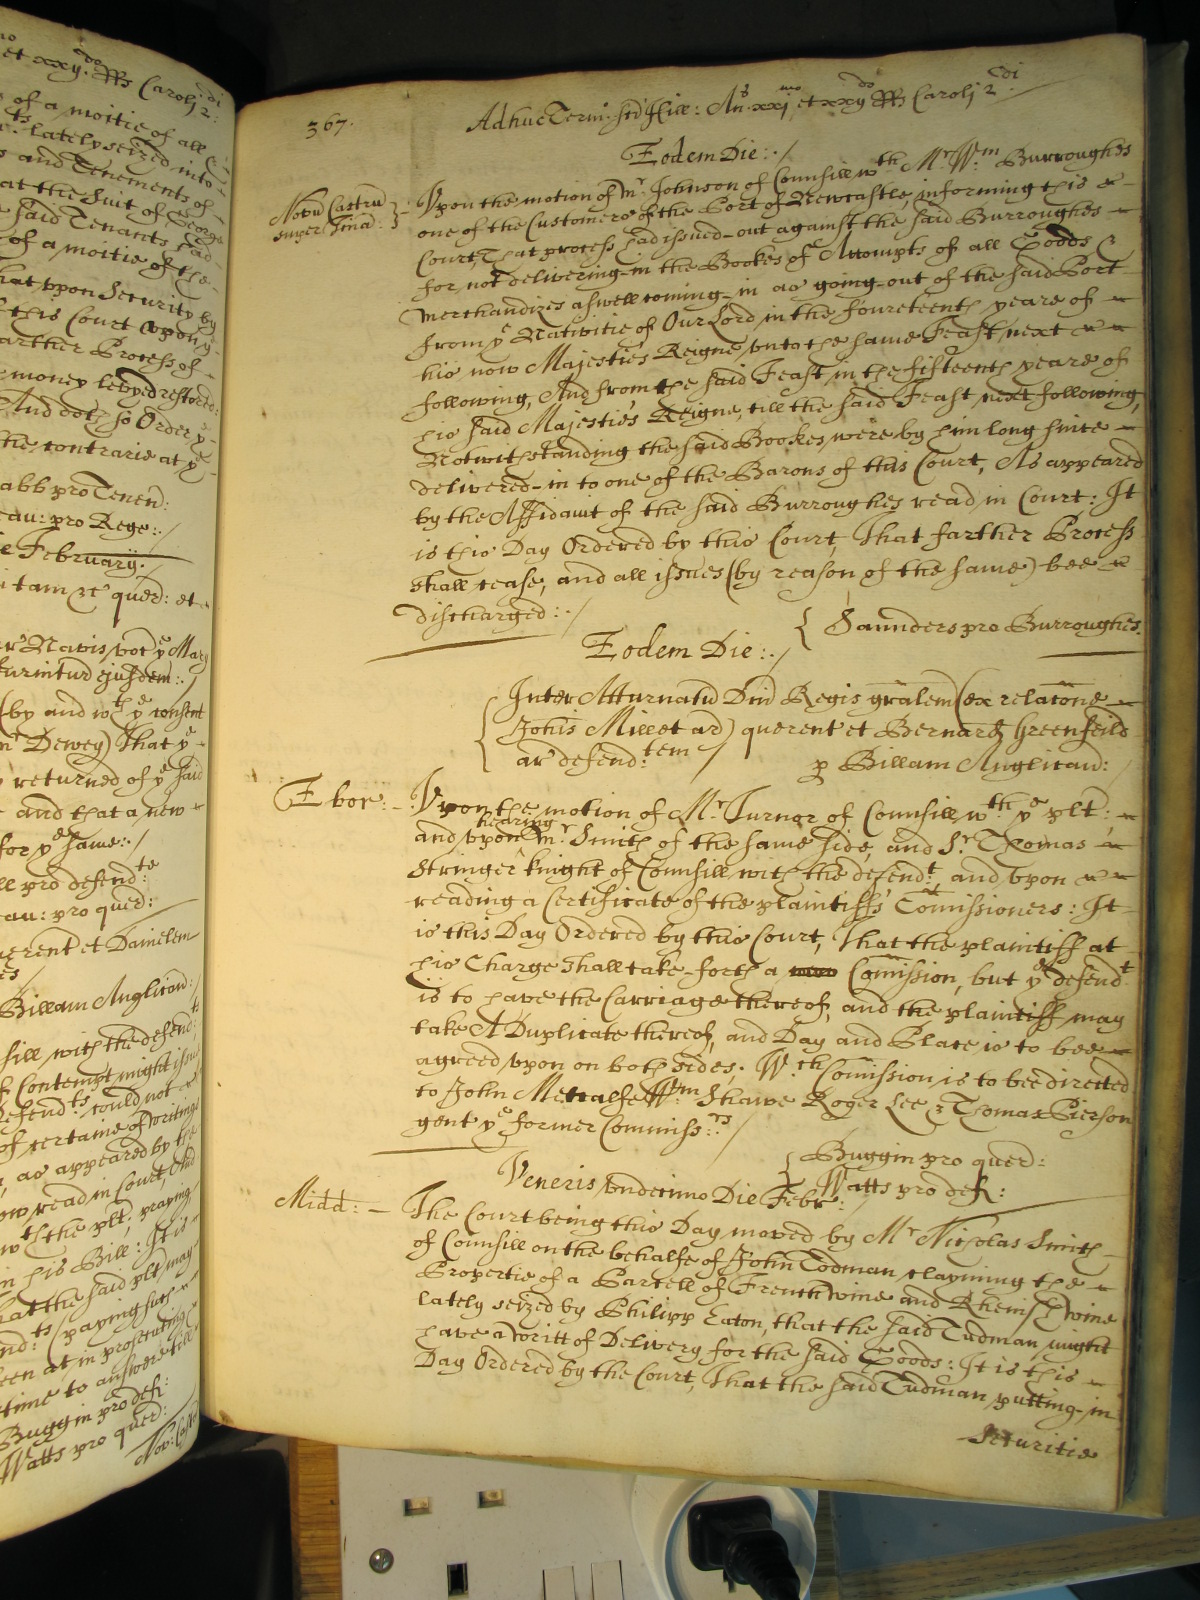 et xxij.do RRs Caroli 2.di
of a moitie of all
lately seized into
and Tenements of
at the Suit of George
said Tenants had
of a moitie of the
hat vpon Security by
this Court vpon
arther Process of
money levyed restored:
And doth so Order ye
the contrarie at ye
abb pro Tenen:
au: pro Rege:
e February.
tam &c quer: et
Navis, voc ye Mary
furnitur ejusdem:
(by and wth ye consent
mr Dewey) That ye
returned of ye said
and that a new
for ye same:
ll pro defend:te
au: pro quer:
querent et Danielem
Billam Anglican:
nsill with the defend:ts
f Contempt might issue
defend:ts could not
of certaine Writings
as appeared by the
now read in Court, And
wth the plt, praying
in his Bill: It is
hat the said plt may
nd:ts (paying such
been at in prosecuting
time to answere till
Buggin pro def:
Watts pro quer:
Nov: Cast
367.
Adhuc Term: Sci Hill: Ans xxjmo et xxijdo RRs Caroli 2di
Eodem Die:
Novu Castru
super Tina:
Vpon the motion of Mr. Johnson of Counsill wth Mr. Wm Burroughes
one of the Customers of the Port of Newcastle, informing this
Court, That process had issued-out against the said Burroughes
for not delivering-in the Bookes of Accompts of all Goods &
Merchandizes aswell coming-in as going-out of the said Port
from ye Nativitie of Our Lord in the foureteenth yeare of
his now Majesties Reigne, vnto the same Feast next
following, And from the said Feast in the fifteenth yeare of
his said Majesties Reigne, till the said Feast next following,
Notwithstanding the said Bookes, were by him long since
delivered-in to one of the Barons of this Court, As appeared
by the Affidavit of the said Burroughes read in Court: It
is this Day Ordered by this Court, That farther Process
shall cease, and all issues (by reason of the same) bee
discharged:
Saunders pro Burroughes.
Eodem Die:
Inter Atturnatu Dni Regis gralem (ex relatone
Johis Millet ar) querent et Bernard Greenfeild
ar defend:tem
p Billam Anglican:
Ebor:
Vpon the motion of Mr. Turnor of Counsill wth ye plt:
and vpon hearing Mr. Smith of the same side, and Sr. Thomas
Stringer knight of Counsill with the defendt. and vpon
reading a Certificate of the plaintiffs Comissioners: It
is this Day Ordered by this Court, That the plaintiff at
his Charge shall take-forth a new Comission, but ye defendt.
is to have the Carriage thereof, and the plaintiff may
take A Duplicate thereof, and Day and Place is to bee
agreed vpon on both sides. Wch Comission is to bee directed
to John Metcalfe Wm Shawe Roger Lee & Thomas Pierson
gent ye former Commiss:rs
Buggin pro quer:
Watts pro def:
Veneris vndecimo Die Febr:
Midd:
The Court being this Day moved by Mr Nicholas Smith
of Counsill on the behalfe of John Todman clayming the
Propertie of a Parcell of French wine and Rhenish wine
lately seized by Philipp Eaton, that the said Tudman might
have a Writt of Delivery for the said Goods: It is this
Day Ordered by the Court, That the said Tudman putting-in
Securitie